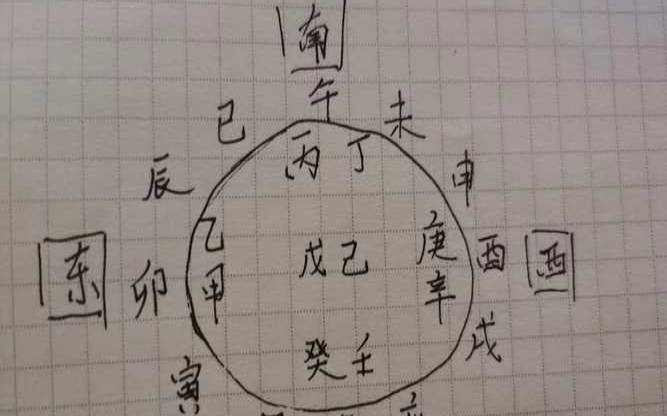 南
午
巳 未
丙 丁
辰 申
乙 庚
东 卯 甲 戊己 辛 酉 西
癸壬 戌
寅